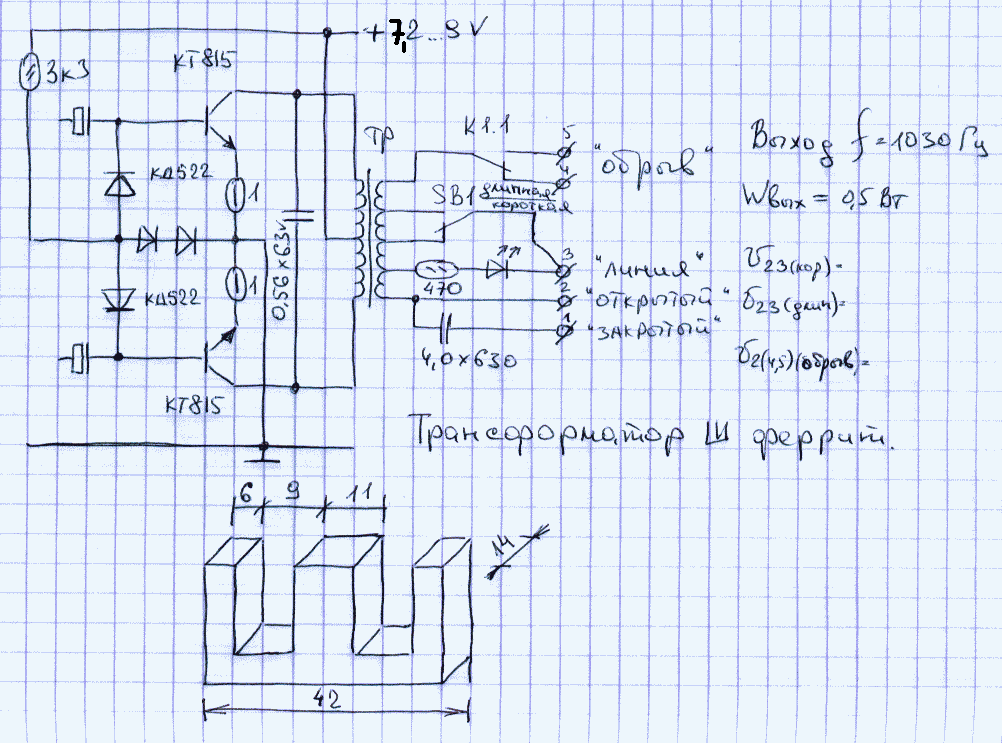 +7,2...9V
КТ815
3к3
ТР
К1.1
5
"обрыв"
4
Выход f = 1030 Гц
КД522
SB1 длинная
короткая
Wвых = 0,5 Вт
1
0,56×63v
3
"линия"
U23(кор)=
470
2
"открытый"
U23(длин)=
КД522
1
1
"закрытый"
4,0×630
U2(4,5)(обрыв)=
КТ815
Трансформатор Ш феррит.
6 9 11
14
42